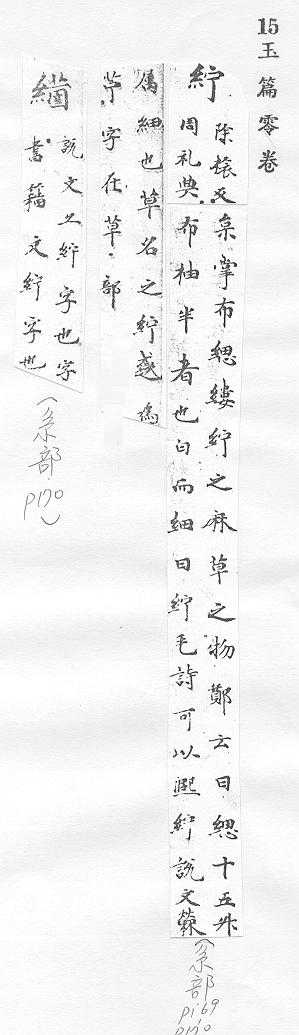 15玉篇零卷
紵
除㯫反
周礼典
枲掌布緦縷紵之麻草之物鄭云曰緦十五升
布柚半者也白而細曰紵毛詩可以漚紵說文檾
属細也草名之紵或為
苧字在草〻部
(糸部
P169
P170
說文亦紵字也字
書籀文紵字也
(糸部
P170)